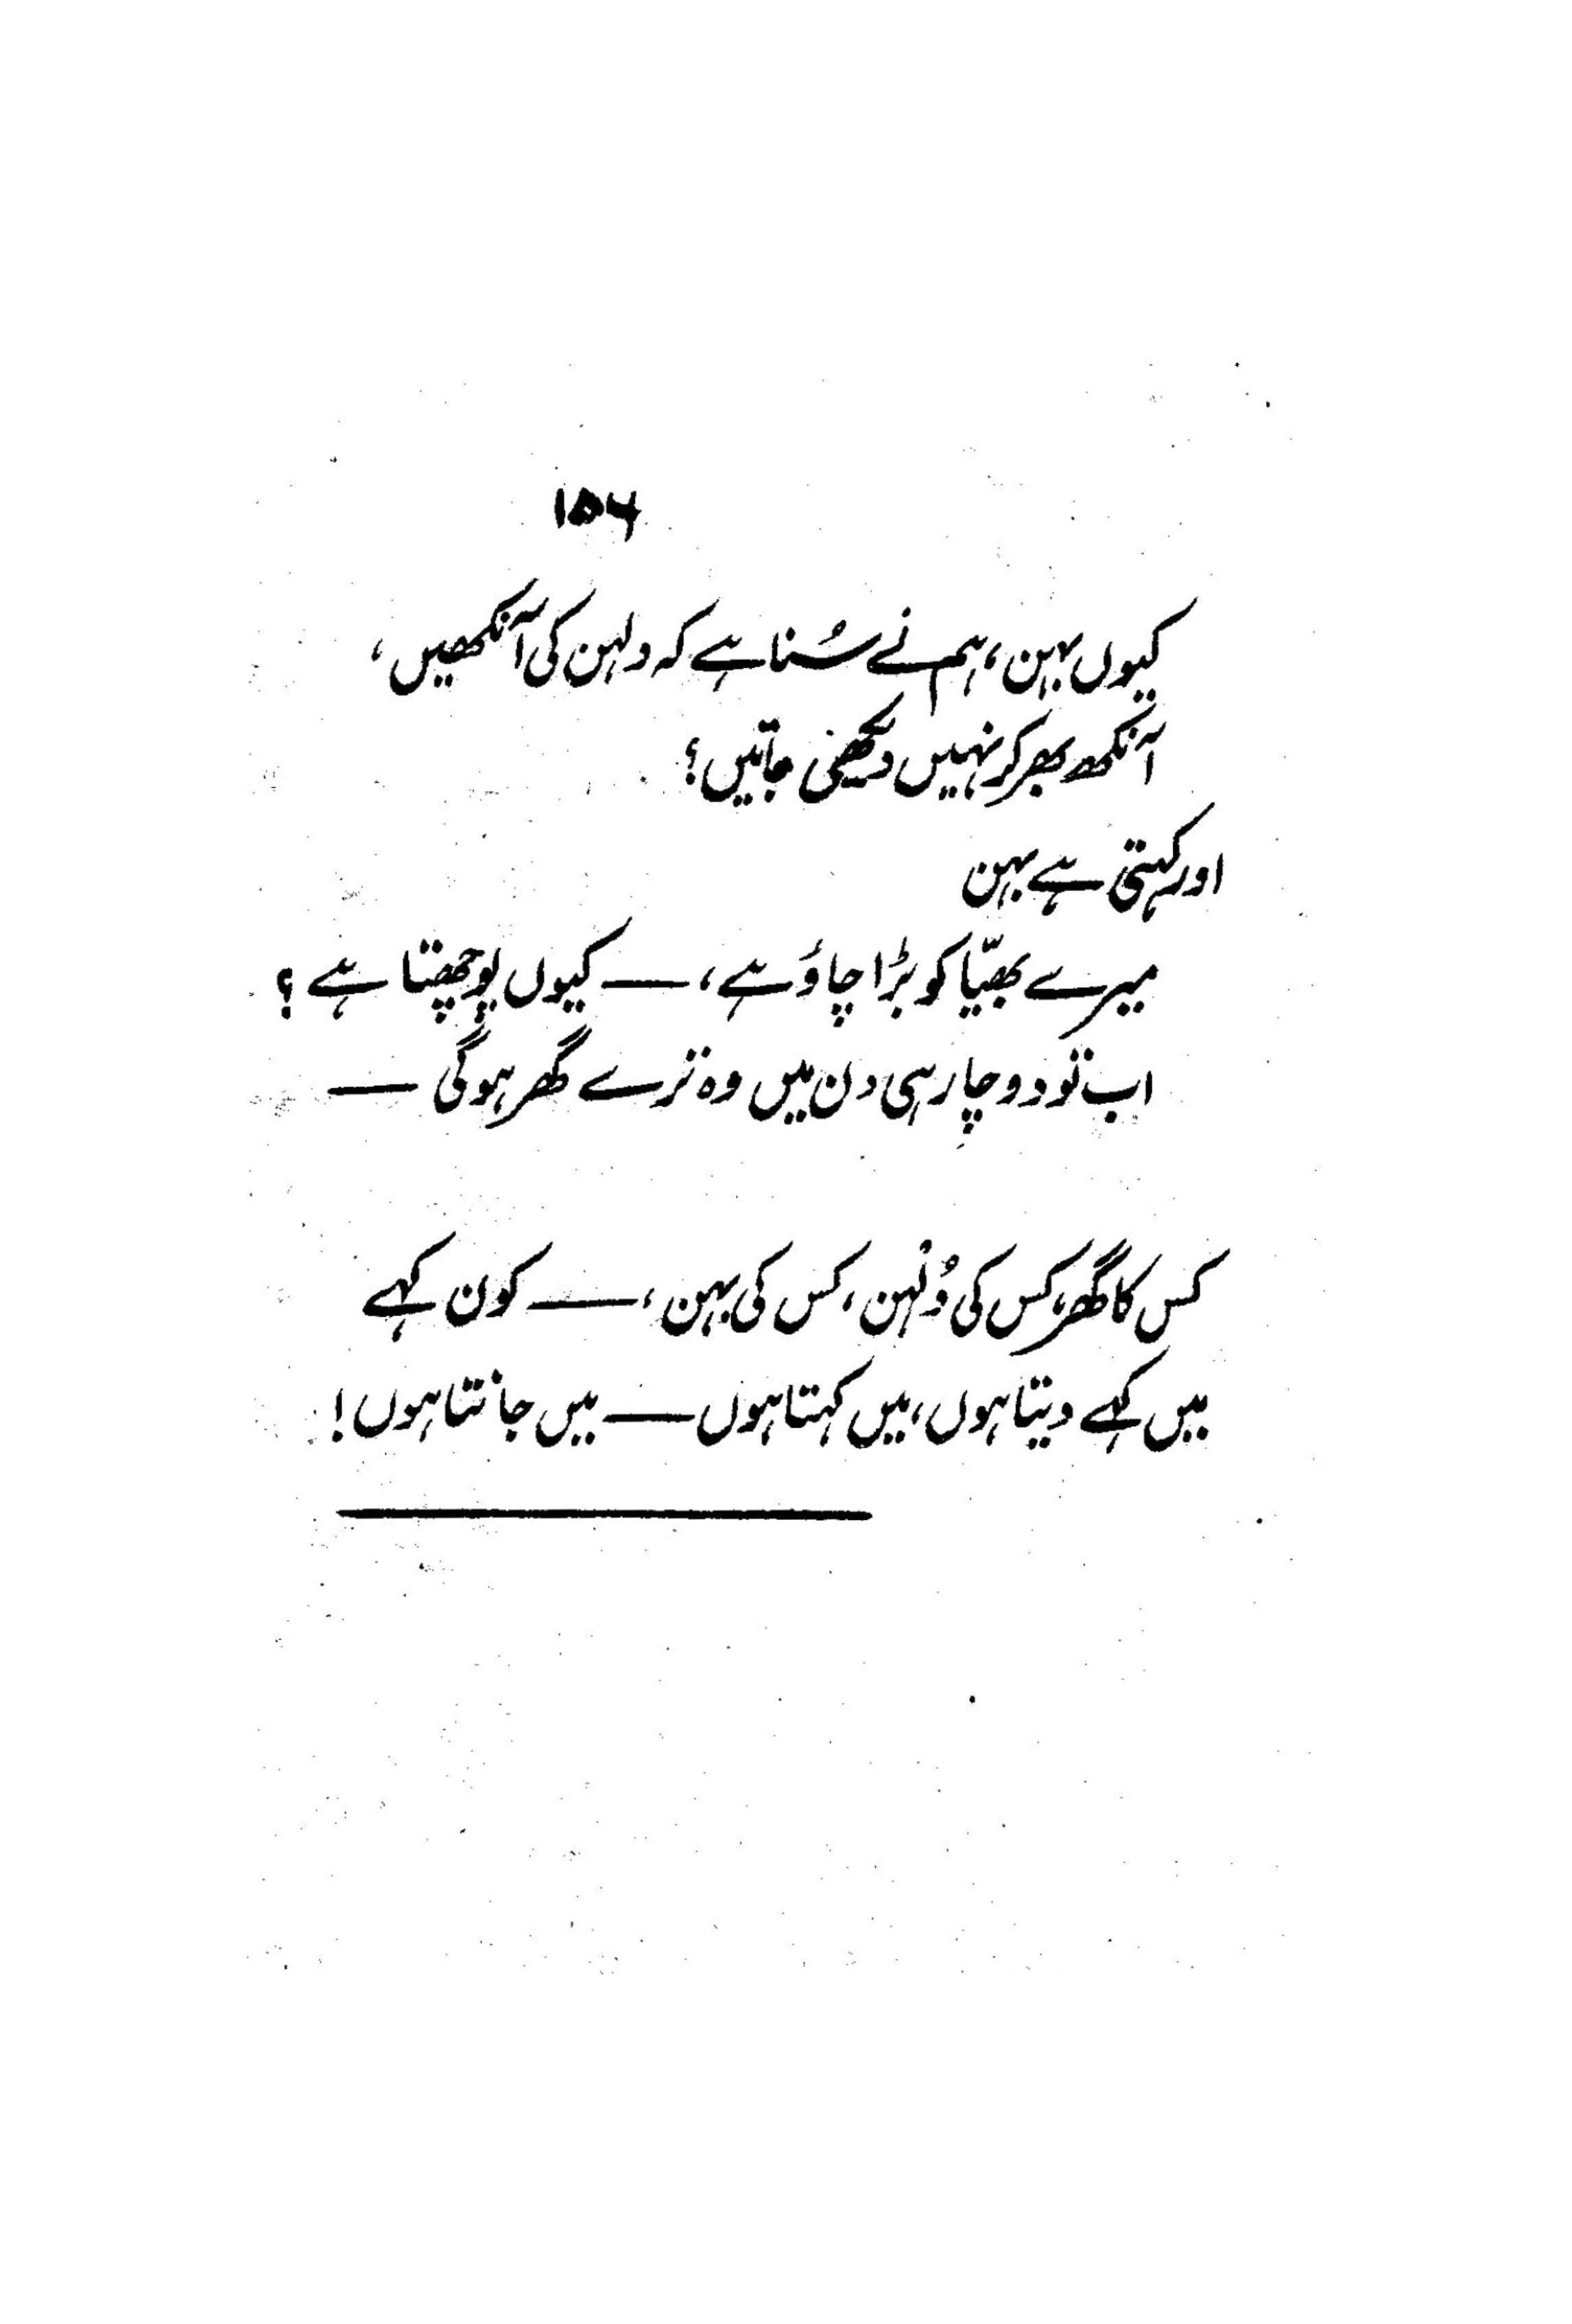 ۱۵۶
کیوں بہن، ہم نے سُنا ہے کہ دلہن کی آنکھیں،
آنکھ بھر کر نہیں دیکھی جاتیں؟
اور کہتی ہے بہن
میرے بھیّا کو بڑا چاؤ ہے، — کیوں پوچھتا ہے؟
اب تو دو چار ہی دن میں وہ ترے گھر ہوگی —
کس کا گھر، کس کی دُلہن، کس کی بہن، — کون کہے
میں کہے دیتا ہوں، میں کہتا ہوں — میں جانتا ہوں!